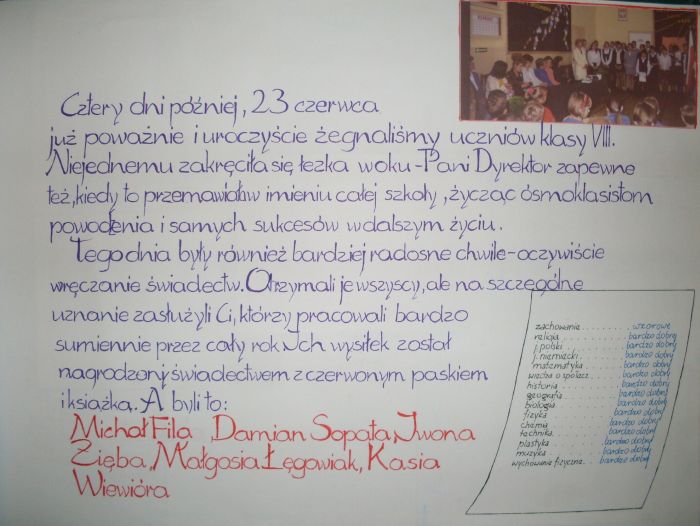 Cztery dni później, 23 czerwca
już poważnie i uroczyście żegnaliśmy uczniów klasy VIII.
Niejednemu zakręciła się łezka w oku - Pani Dyrektor zapewne
też, kiedy to przemawiała w imieniu całej szkoły, życząc ósmoklasistom
powodzenia i samych sukcesów w dalszym życiu.
Tego dnia były również bardziej radosne chwile - oczywiście
wręczanie świadectw. Otrzymali je wszyscy, ale na szczególne
uznanie zasłużyli Ci, którzy pracowali bardzo
sumiennie przez cały rok. Ich wysiłek został
nagrodzony świadectwem z czerwonym paskiem
i książką. A byli to:
Michał Fila, Damian Sopata, Iwona
Zięba, Małgosia Łęgowiak, Kasia
Wiewióra
zachowanie.......... wzorowe
religia............ bardzo dobry
j. polski.......... bardzo dobry
j. niemiecki....... bardzo dobry
matematyka........ bardzo dobry
wiedza o społecz... bardzo dobry
historia.......... bardzo dobry
geografia......... bardzo dobry
biologia.......... bardzo dobry
fizyka............ bardzo dobry
chemia............ bardzo dobry
technika.......... bardzo dobry
plastyka.......... bardzo dobry
muzyka............ bardzo dobry
wychowanie fizyczne... bardzo dobry